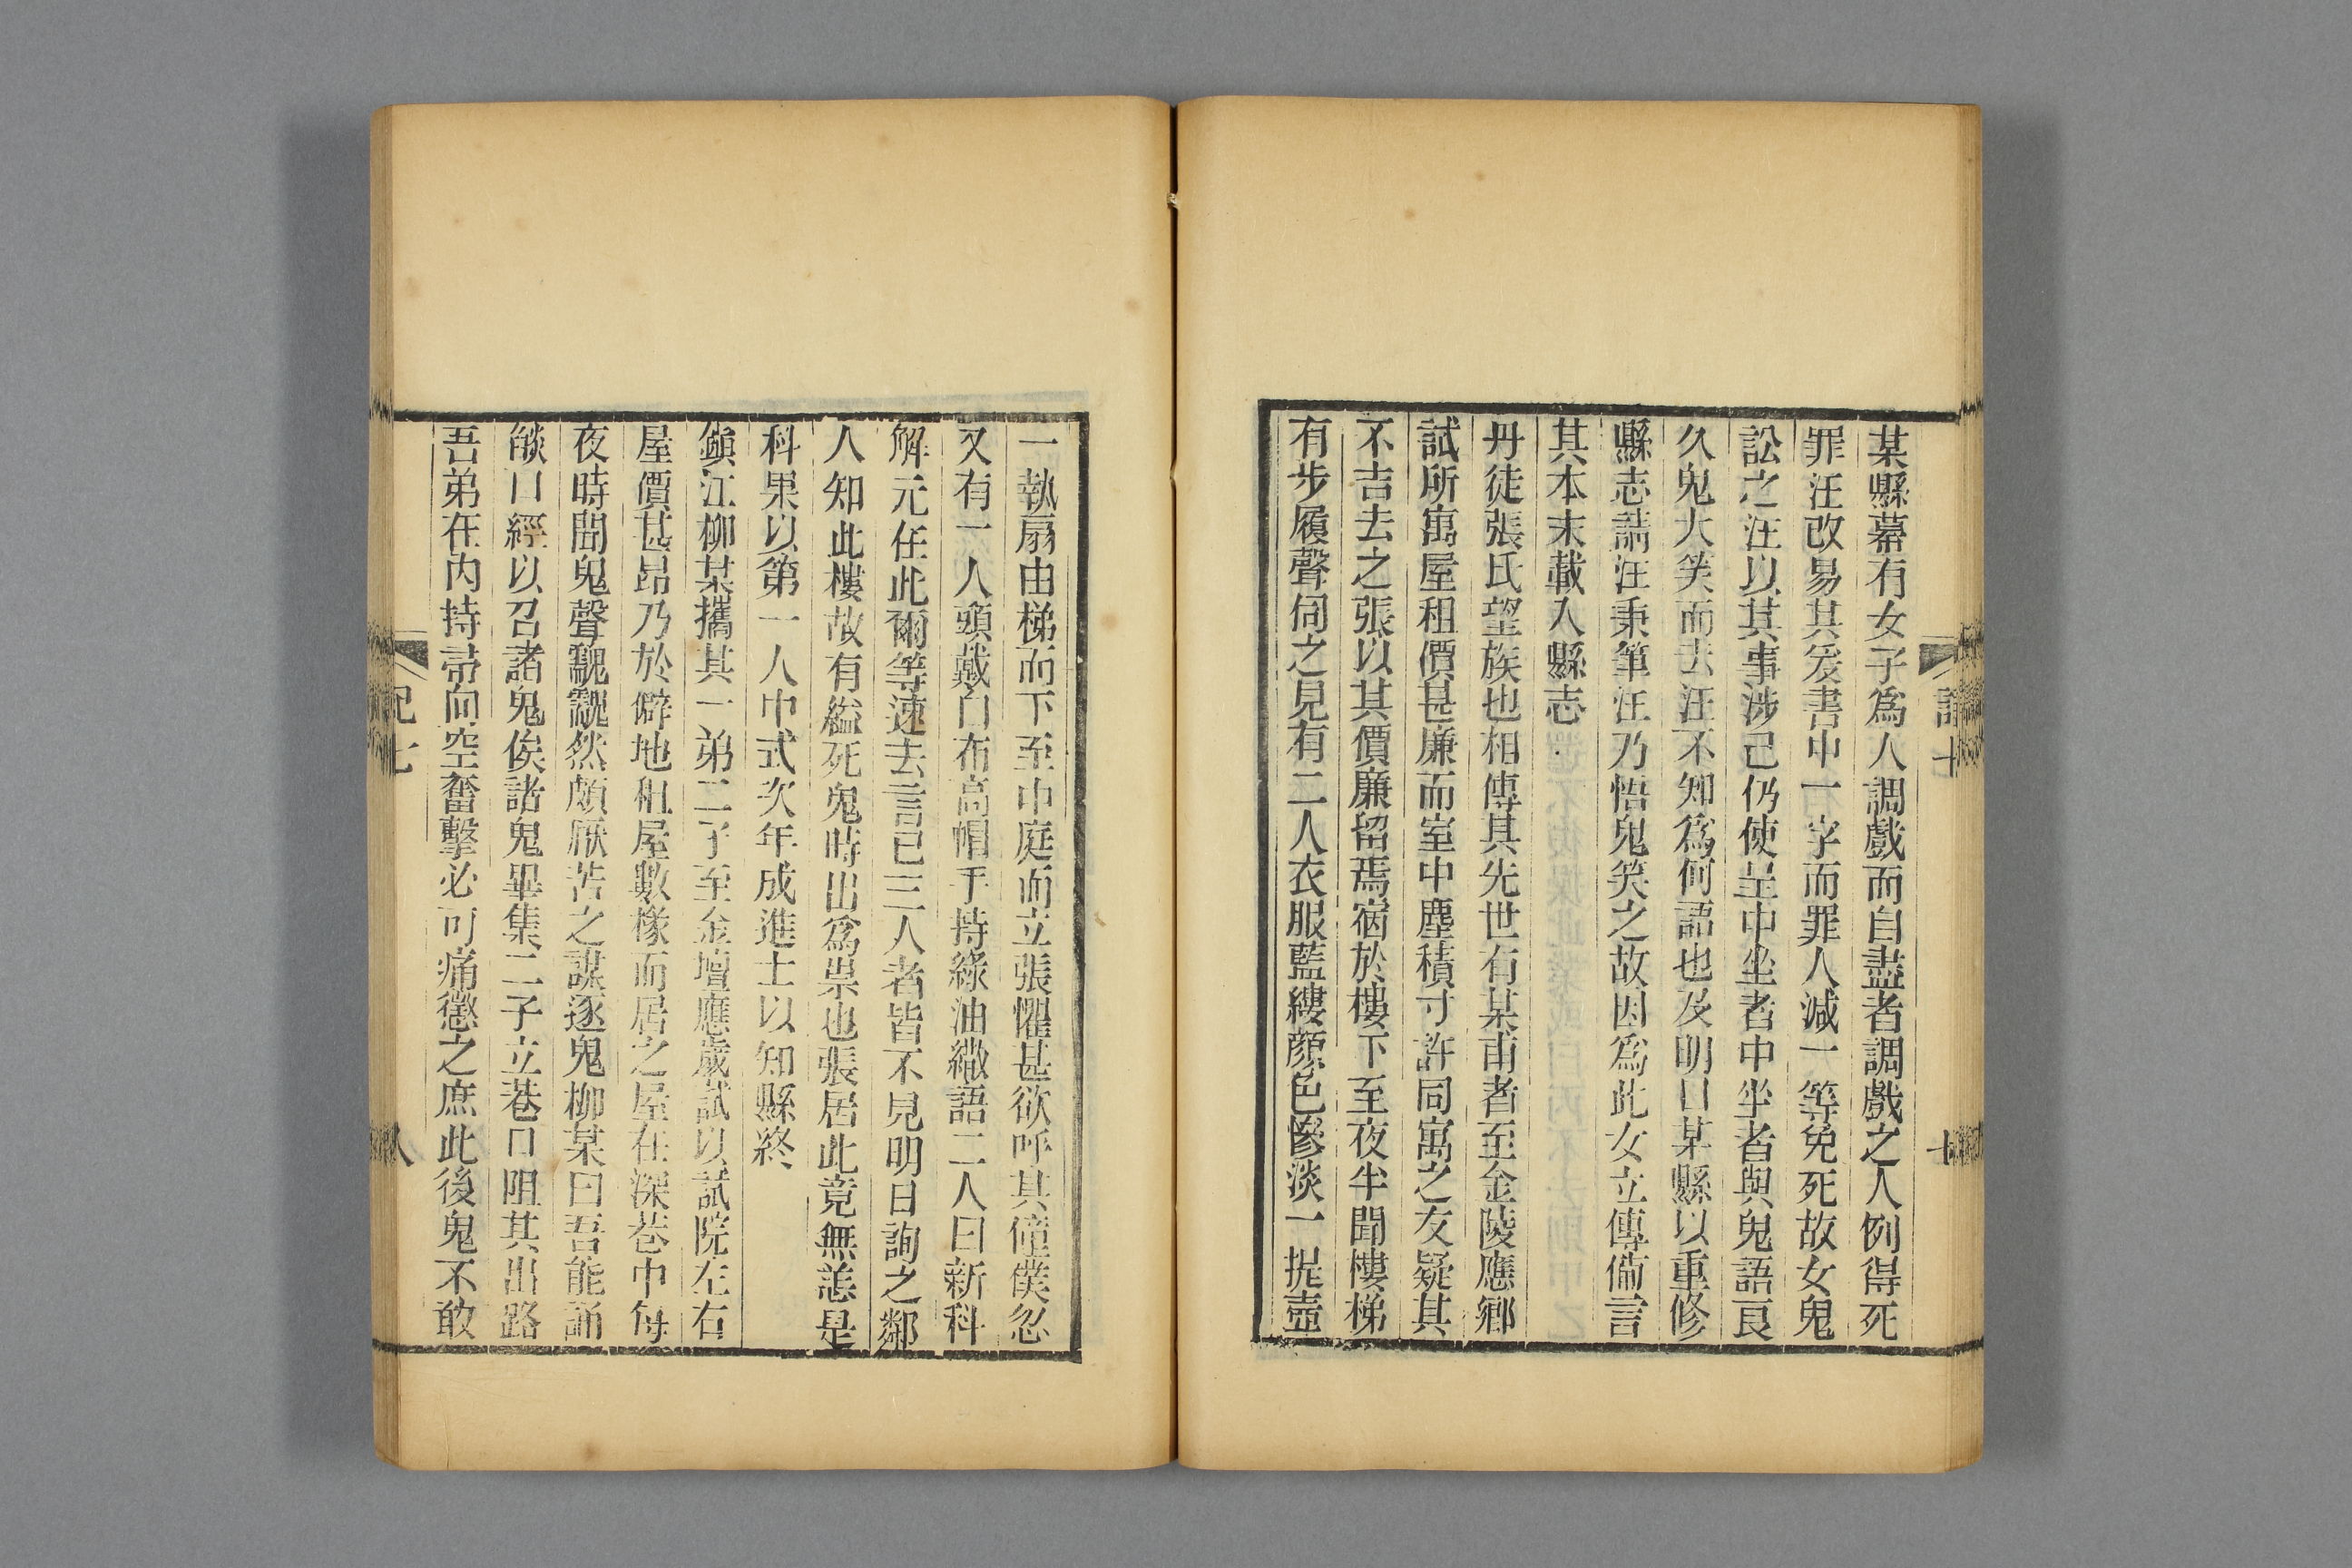 某縣幕有女子為人調戲而自盡者調戲之人例得死
罪汪改易其爰書中一字而罪人減一等免死故女鬼
訟之汪以其事涉己仍使呈中坐者中坐者與鬼語良
久鬼大笑而去汪不知為何語也及明日某縣以重修
縣志請汪秉筆汪乃悟鬼笑之故因為此女立傳備言
其本末載入縣志
丹徒張氏望族也相傳其先世有某甫者至金陵應鄉
試所寓屋租價甚廉而室中塵積寸許同寓之友疑其
不吉去之張以其價廉留焉宿於樓下至夜半聞樓梯
有步履聲伺之見有二人衣服藍縷顏色慘淡一提壺
一執扇由梯而下至中庭而立張懼甚欲呼其僮僕忽
又有一人頭戴白布高帽手持綠油繖語二人曰新科
解元在此爾等速去言已三人者皆不見明日詢之鄰
人知此樓故有縊死鬼時出為祟也張居此竟無恙是
科果以第一人中式次年成進士以知縣終
鎮江柳某攜其一弟二子至金壇應歲試以試院左右
屋價甚昂乃於僻地租屋數椽而居之屋在深巷中每
夜時聞鬼聲䰰䰰然頗厭苦之謀逐鬼柳某曰吾能誦
燄口經以召諸鬼俟諸鬼畢集二子立巷口阻其出路
吾弟在內持帚向空奮擊必可痛懲之庶此後鬼不敢
記七
八